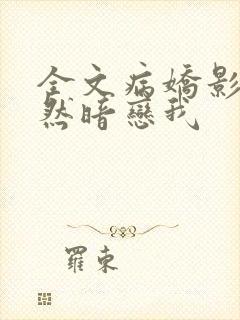 全文病嬌影
然暗戀我
羅東